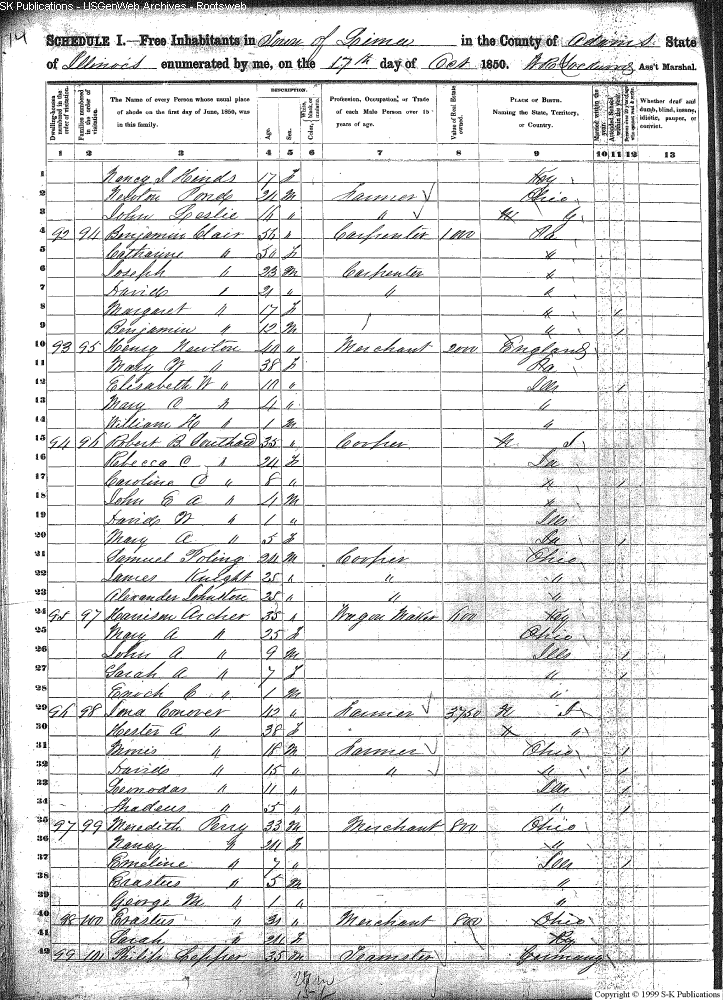 SK Publications - USGenWeb Archives - Rootsweb
SCHEDULE I.—Free Inhabitants in Town of Lima in the County of Adams State
of Illinois enumerated by me, on the 17th day of Oct 1850. Ass't Marshal.
Dwelling-houses numbered in the order of visitation.
Families numbered in the order of visitation.
The Name of every Person whose usual place of abode on the first day of June, 1850, was in this family.
DESCRIPTION.
Age.
Sex.
White, black, or mulatto.
Color,
Profession, Occupation, or Trade of each Male Person over 15 years of age.
Value of Real Estate owned.
PLACE OF BIRTH.
Naming the State, Territory, or Country.
Married within the year.
Attended School within the year.
Whether deaf and dumb, blind, insane, idiotic, pauper, or convict.
1 2 3 4 5 6 7 8 9 10 11 12 13
1 Nancy J Hinds 17 F Ky
2 Newton Pond 24 M Farmer Ohio
3 John Leslie 16 " "
4 92 94 Benjamin Clair 56 " Carpenter 1000 Pa
5 Catharine " 50 F "
6 Joseph " 23 M Carpenter "
7 David " 21 " " "
8 Margaret " 17 F " 1
9 Benjamin " 12 M " 1
10 93 95 Henry Newton 40 " Merchant 2000 England
11 Mary " 38 F Pa
12 Elisabeth W " 10 " Ills 1
13 Mary C " 4 " "
14 William H " 1 M "
15 94 96 Robert B Southard 35 " Cooper N J
16 Rebecca C " 24 F Ia
17 Caroline C " 8 " " 1
18 John E A " 4 M "
19 David W " 1 " Ills
20 Mary A " 5 F Ia 1
21 Samuel Poling 24 M Cooper Ohio
22 James Knight 25 " " "
23 Alexander Johnston 28 " " "
24 95 97 Harrison Archer 35 " Wagon Maker 600 Key
25 Mary A " 25 F Ohio
26 John A " 9 M Ills 1
27 Sarah A " 7 F " 1
28 Enoch C " 1 M "
29 96 98 Conover 42 " Farmer 3750 N J
30 Hester A " 38 F " "
31 Morris " 18 M Farmer Ohio 1
32 David " 15 " " " 1
33 Leonodas " 11 " Ills 1
34 Thadeus " 5 " " 1
35 97 99 Meredith Perry 33 M Merchant 800 Ohio
36 Nancy " 24 F "
37 Emeline " 7 " Ills 1
38 Erastus " 5 M "
39 George M " 1 " "
40 98 100 Erastus " 31 " Merchant 800 Ohio
41 Sarah " 24 F Ky
42 99 101 Philip Lepper 35 M Teamster Germany
Copyright © 1999 S-K Publications